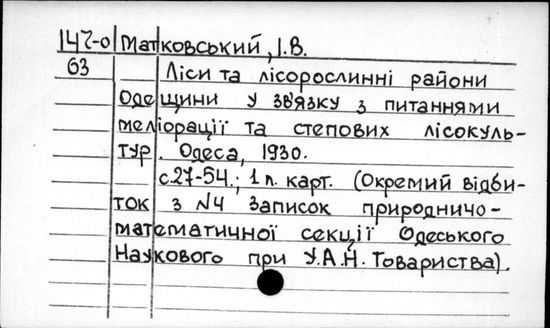 147-о Матковський, І.В.
63 Ліси та лісорослинні райони
Одещини у зв'язку з питаннями
меліорації та степових лісокуль-
тур. Одеса, 1930.
с.27-54.; 1 п. карт. (Окремий відби-
ток з №4 Записок природничо-
математичної секції Одеського
Наукового при У.А.Н. Товариства).